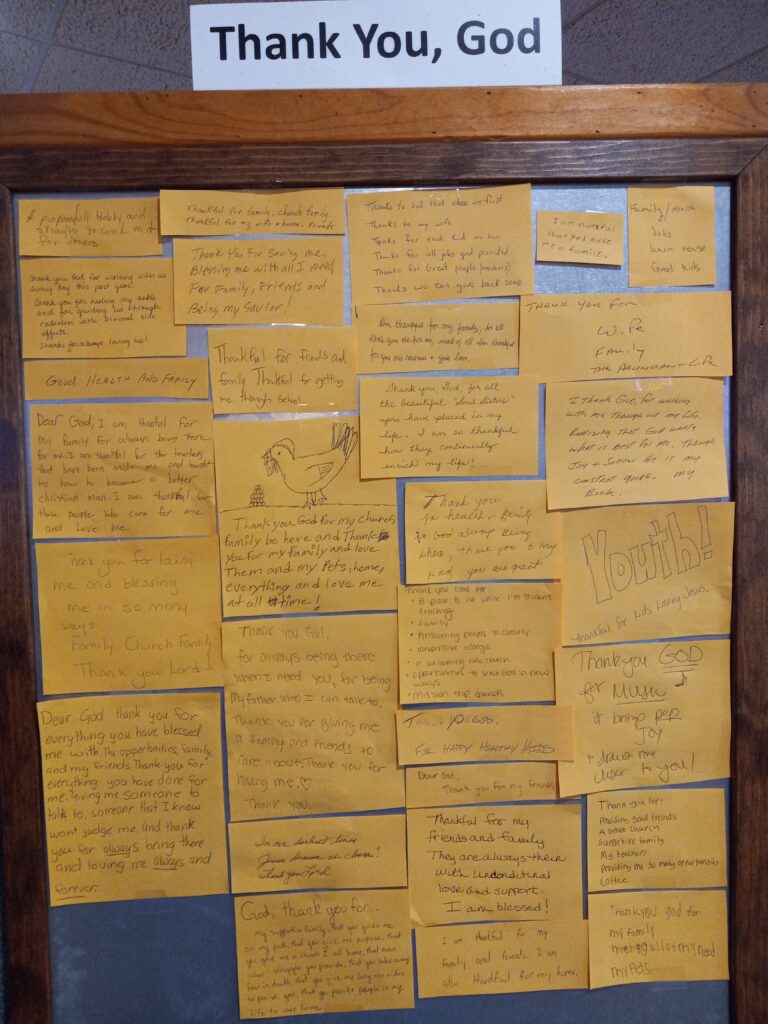 Thank You, God
A purposefull Hobby and
strength to work on it
for others
Thankful for family, church family.
Thankful for my wife + home, friends.
Thanks to God that chose us first
Thanks to my wife
Thanks for each kid we have
Thanks for all jobs god provided.
Thanks for Great people
Thanks we can give back some
I am thankful
that God gave
me a family.
Family/Health
Jobs
Warm house
Good kids
Thank you God for working with us
every day this past year!
Thank you for healing my ankle
and for guiding us through
radiation with minimal side
effects.
Thanks for always loving us!
Thank You for Saving me,
Blessing me with all I Need,
For Family, Friends and
Being my Savior!
I'm thankful for my family, for all
that you do for me, most of all I'm thankful
for you
Thank you for
Wife
Family
The Abundant Life
Good Health And Family
Thankful for friends and
family. Thankful for getting
me through School
Thank you, God, for all
the beautiful "Soul Sisters"
you have placed in my
life. I am so thankful
how they continually
enrich my life!
I Thank God, for working
with me throughout my life.
Realizing that God wants
what is best for me. Through
Joy + Sorrow He is my
greatest guide. my
Rock.
Dear God, I am thankful for
my family for always being there
for me. I am thankful for the teachers
that have been aside me and taught
me how to become a better
christian man. I am thankful for
those people who care for me
and Love me.
Thank you God for my church
family be here and Thank
you for my family and love
Them and my pets, home,
everything and love me
at all time!
Thank you
for health - family
for God always being
there, Thank you to my
Lord, you are great
Youth!
thankful for kids Loving Jesus.
Thank you for loving
me and blessing
me in so many
ways
Family, Church Family
Thank you Lord!
Thank you God,
for always being there
when I need you, for being
My father who I can talk to.
Thank you for giving me
a family and friends to
care about. Thank you for
loving me. ♡
Thank you.
Thank you Lord for
• A place to live while I'm student
teaching
• family
• Answering prayers so clearly
• college
• a welcoming new church
• opportunities to serve God in new
ways
• mission trip friends
Thank you GOD
for Music
it brings
Joy
+ draws me
closer to you!
Dear God thank you for
everything you have blessed
me with. The opportunities, family,
and my friends. Thank you for
everything you have done for
me. Giving me someone to
talk to, someone that I know
wont judge me, and thank
you for always being there
and loving me always and
forever.
Thank you God,
For Happy Healthy Kids
Dear God,
Thank you for my friends
In our darkest times
Jesus
Thank you Lord.
Thankful for my
friends and family
They are always there
with unconditional
love and support.
I am blessed!
Thank you for:
Providing good friends
A Great Church
Supportive family
My teachers
Providing me so many opportunities
Coffee
God, thank you for...
my supportive family, that you guide me
on my path, that you give me purpose, that
you gave me a church I call home, that even
when I struggle you provide, that you take away
fear in death, that you give me long car rides
to praise you, that you provide people in my
life to care for me
I am thankful for my
family and friends. I am
also thankful for my home.
Thank you god for
my family
my food
my Pets